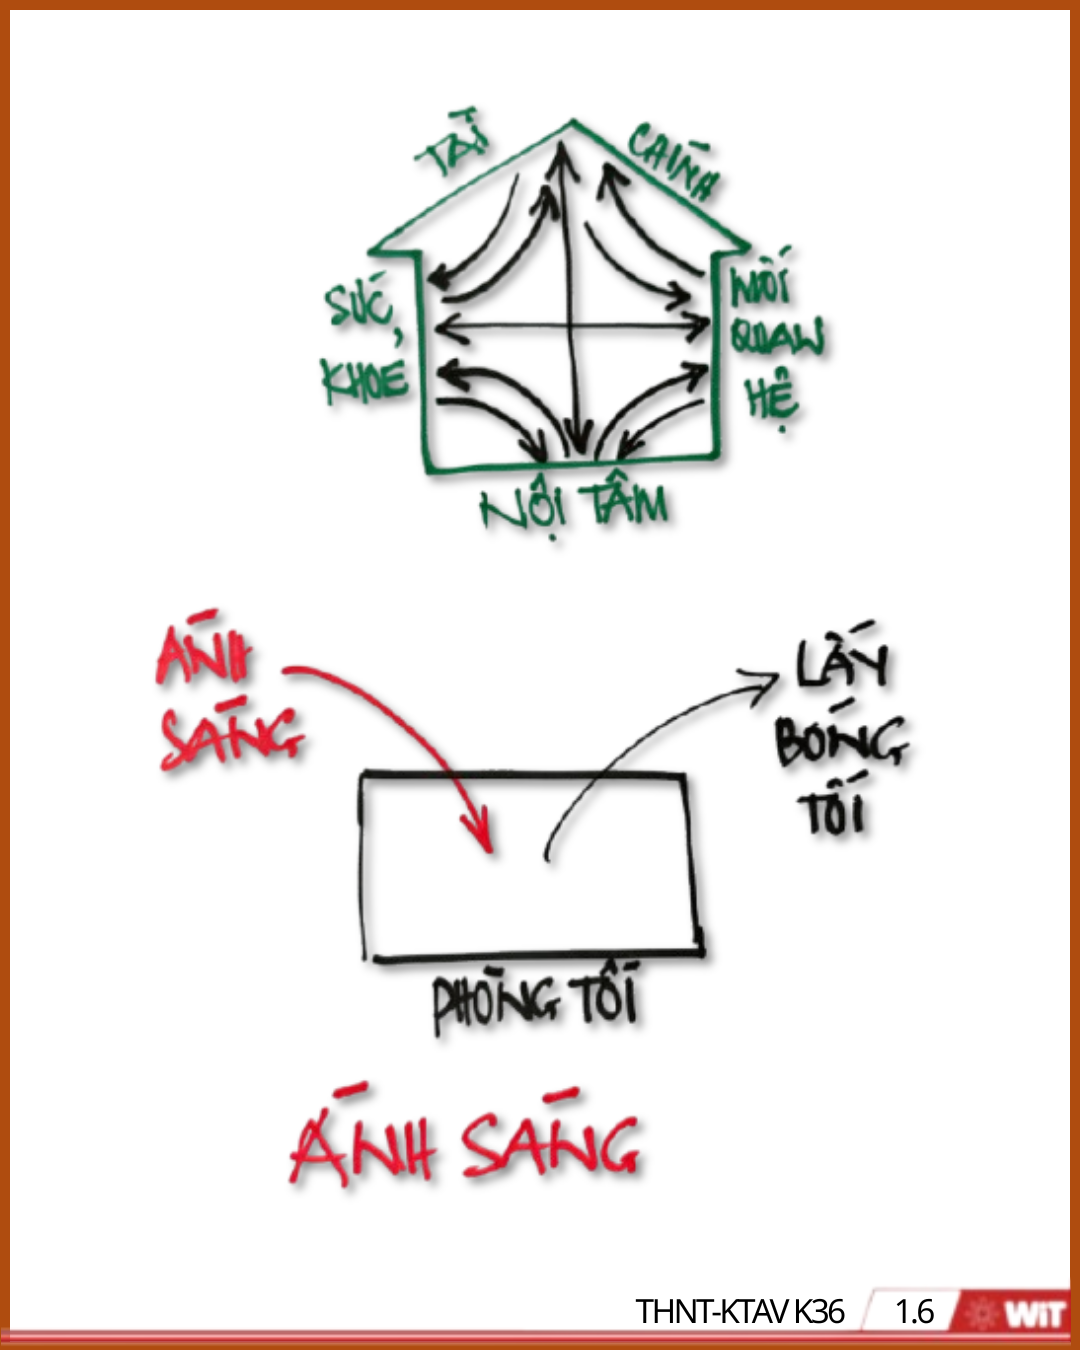 TÀI CHÍNH
SỨC KHOẺ
MỐI QUAN HỆ
NỘI TÂM
ÁNH SÁNG
LẤY BÓNG TỐI
PHÒNG TỐI
ÁNH SÁNG
THNT-KTAV K36 1.6 WiT